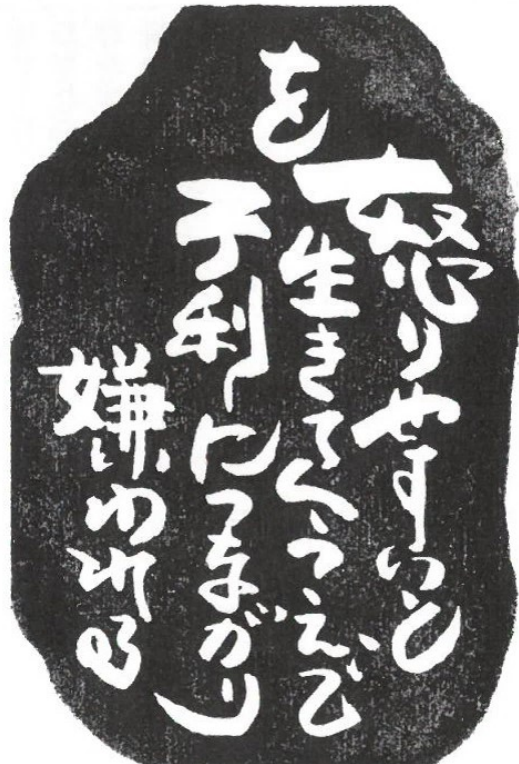 怒りやすいと
を生きてくうえで
不利につながり
嫌われる